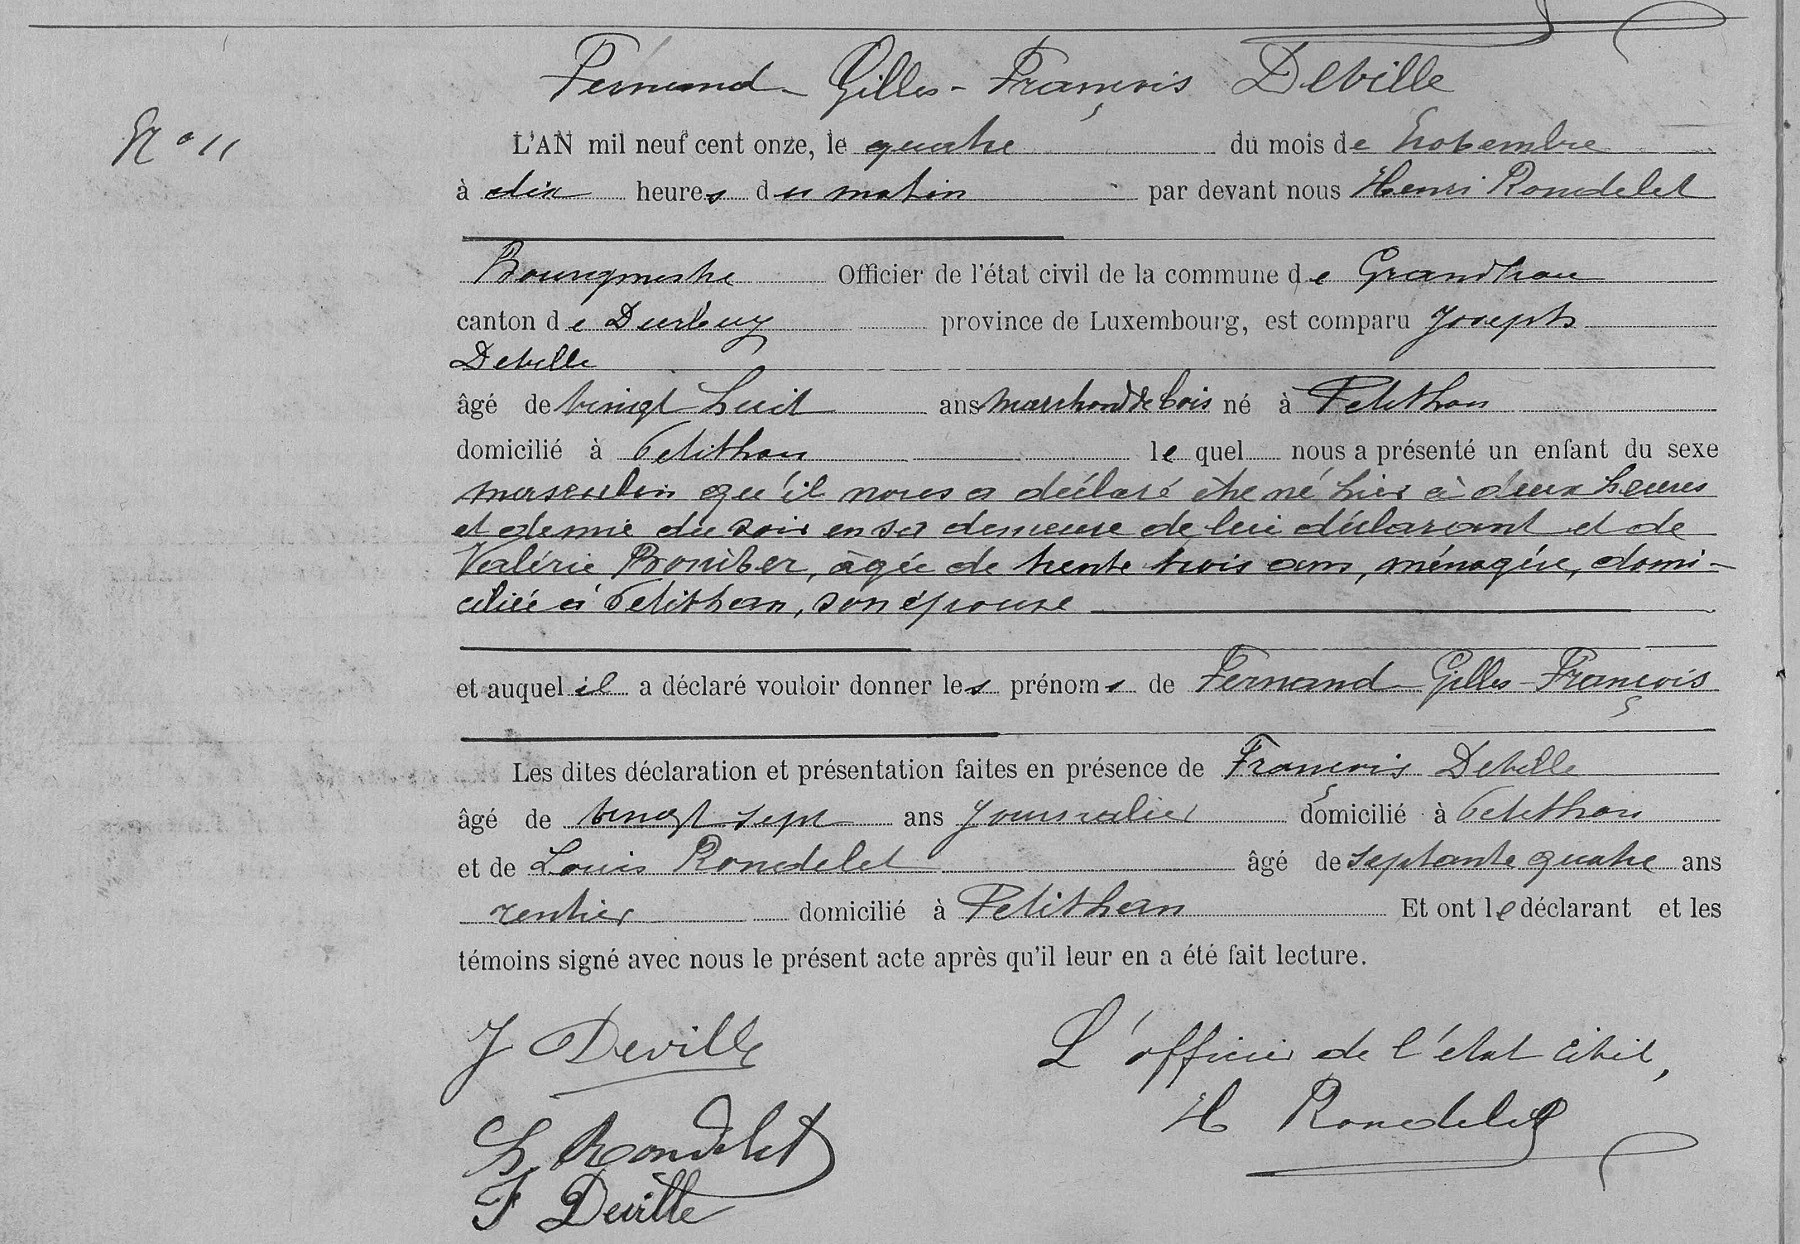 Fernand - Gilles - François Deville
N° 11
L'AN mil neuf cent onze, le quatre du mois de Novembre
à dix heures du matin par devant nous Henri Rondelet
Bourgmestre Officier de l'état civil de la commune de Grandhan
canton de Durbuy province de Luxembourg, est comparu Joseph
Deville
âgé de vingt huit ans marchand de bois né à Petithan
domicilié à Petithan lequel nous a présenté un enfant du sexe
masculin qu'il nous a déclaré être né hier à deux heures
et demie du soir en sa demeure de lui déclarant et de
Valérie, âgée de trente trois ans, ménagère, domi-
ciliée à Petithan, son épouse
et auquel il a déclaré vouloir donner les prénoms de Fernand - Gilles - François
Les dites déclaration et présentation faites en présence de François Deville
âgé de vingt sept ans journalier domicilié à Petithan
et de Louis Rondelet âgé de septante quatre ans
rentier domicilié à Petithan Et ont le déclarant et les
témoins signé avec nous le présent acte après qu'il leur en a été fait lecture.
J Deville
L'officier de l'état civil,
H Rondelet
L. Rondelet
F Deville